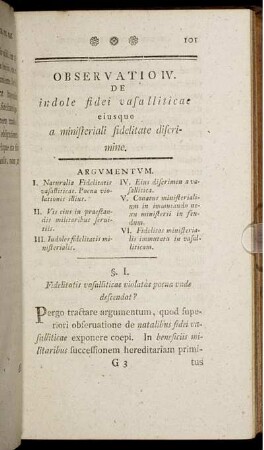 101
OBSERVATIO IV.
DE
indole fidei vasalliticae
eiusque
a ministeriali fidelitate discri-
mine.
ARGVMENTVM.
I. Naturalia Fidelitatis
vasalliticae. Poena vio-
lationis illius.
II. Vis eius in praestan-
dis militaribus serui-
tiis.
III. Indoles fidelitatis mi-
nisterialis.
IV. Eius discrimen a va-
sallitica.
V. Conatus ministeriali-
um in immutando ne-
xu ministerii in feu-
dum.
VI. Fidelitas ministeria-
lis immutata in vasal-
liticam.
§. I.
Fidelitatis vasalliticae violatae poena unde
descendat?
Pergo tractare argumentum, quod supe-
riori obseruatione de natalibus fidei va-
salliticae exponere coepi. In beneficiis mi-
litaribus successionem hereditariam primi-
G 3 tusi